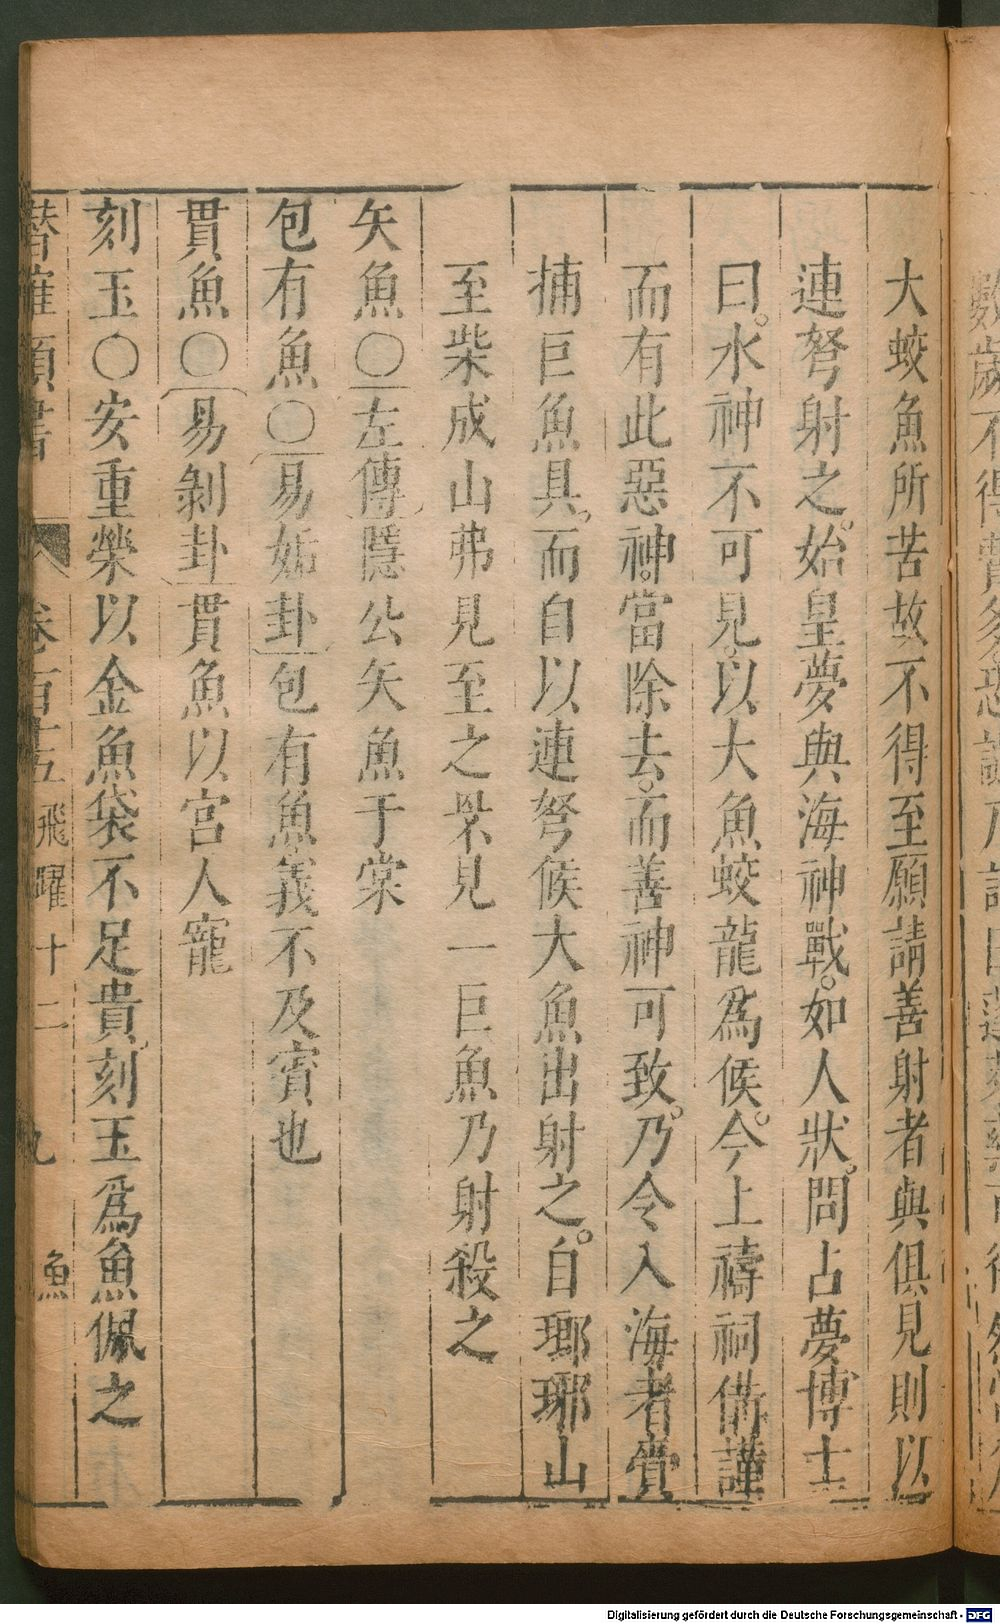 大蛟魚所苦故不得至願請善射者與俱見則以
連弩射之。始皇夢與海神戰。如人狀。問占夢博士
曰。水神不可見。以大魚蛟龍爲候。今上禱祠備謹
而有此惡神。當除去。而善神可致。乃令入海者賫
捕巨魚具。而自以連弩候大魚出射之。自瑯琊山
至柴成山弗見至之罘見一巨魚乃射殺之
矢魚〇左傳隱公矢魚于棠
包有魚〇易姤卦包有魚義不及賓也
貫魚〇易剝卦貫魚以宮人寵
刻玉〇安重榮以金魚袋不足貴刻玉爲魚佩之
潛確類書 卷一百十五 飛躍十二 九 魚
Digitalisierung gefördert durch die Deutsche Forschungsgemeinschaft - DFG